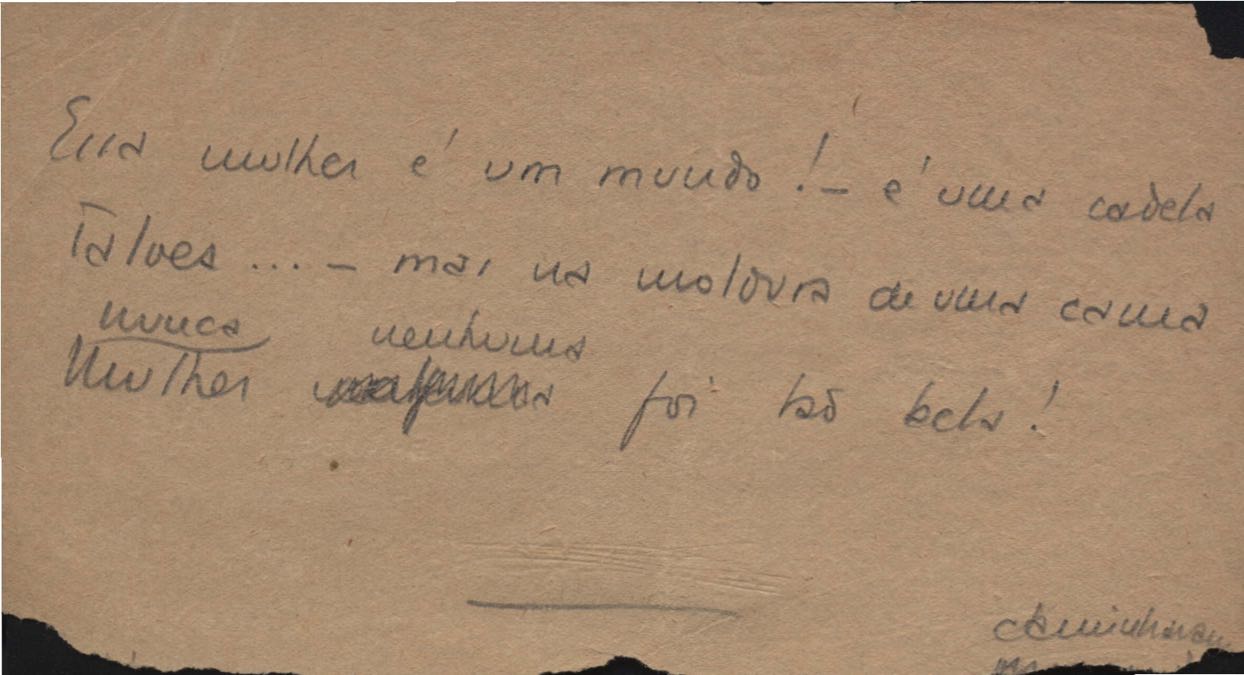 Essa mulher é um mundo! – é uma cadela
Talves ... – mas na moldura de uma cama
nunca nenhuma
Mulher foi tão bela!
caminhavam